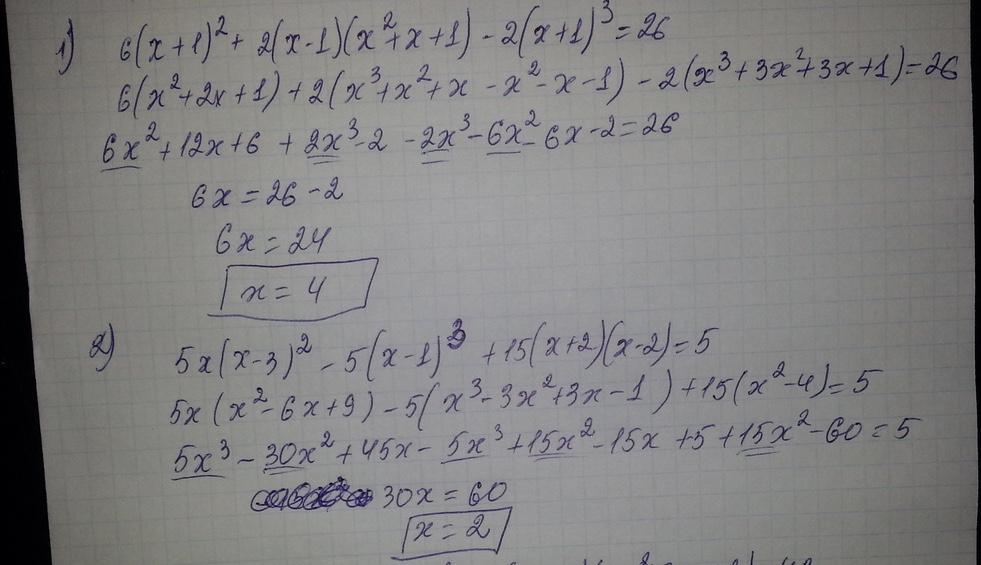 1) 6(x+1)²+ 2(x-1)(x²+x+1) - 2(x+1)³=26
6(x²+2x+1)+2(x³+x²+x - x²-x-1) - 2(x³+3x²+3x+1)=26
6x²+12x+6 + 2x³-2 - 2x³-6x²-6x-2=26
6x=26-2
6x=24
x=4
2) 5x(x-3)² - 5(x-1)³ +15(x+2)(x-2)=5
5x(x²-6x+9) - 5(x³-3x²+3x-1) +15(x²-4)=5
5x³-30x²+45x-5x³+15x²-15x+5+15x²-60=5
30x=60
x=2